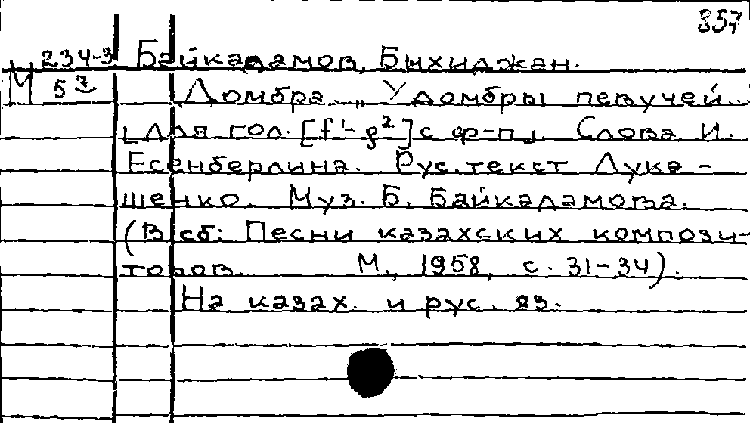 857
234-3 Байкадамов, Быхиджан.
М 53 Домбра. „ У домбры певучей..
[Для гол. [f¹-g²] с ф-п.] Слова И.
Есенберлина. Рус. текст Лука-
шенко. Муз. Б. Байкадамова.
(В сб: Песни казахских компози-
торов. М., 1958, с. 31-34).
На казах. и рус. яз.